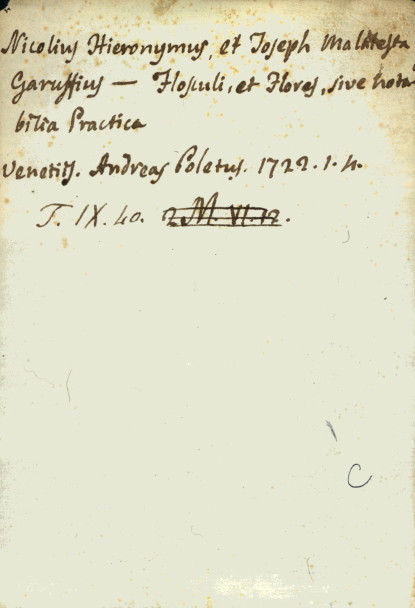 Nicolius Hieronymus, et Joseph Malatesta
Garuffius — Flosculi, et Flores, sive nota
bilia Practica
Venetijs. Andreas Poletus. 1722. 1. 4.
T. IX. 40. 2 M. VI. 12.
C